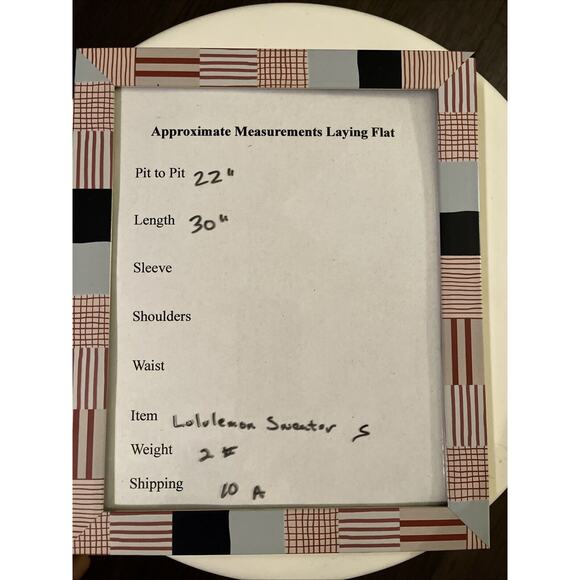 Approximate Measurements Laying Flat
Pit to Pit 22"
Length 30"
Sleeve
Shoulders
Waist
Item Lululemon Sweater S
Weight 2 #
Shipping 10 A